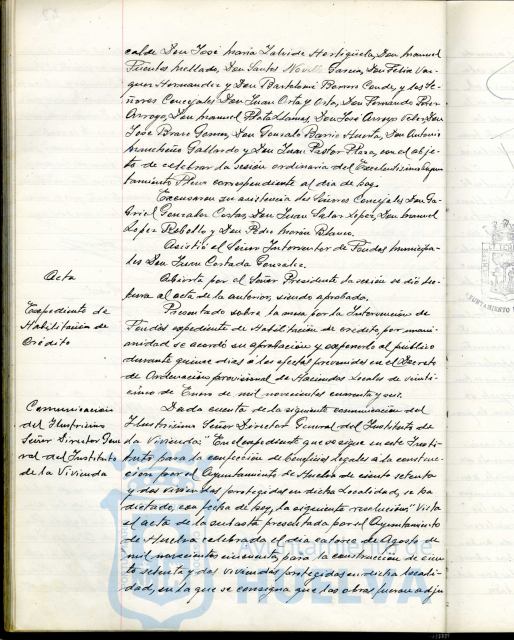 calde Don José María Talvide Hortigüela, Don Manuel
Fuentes Mellado, Don Santos García, Don Félix Vaz-
quez Hernandez y Don Bartolomé Borrero Conde, y los Se-
ñores Concejales Don Juan Orta y Orta, Don Fernando
Arroyo, Don Manuel Mata Llamas, Don José Arroyo Don
José Bravo Gomez, Don Gonzalo Barrio Huerta, Don Antonio
Mancheño Gallardo y Don Juan Pastor Plaza, con el obje-
to de celebrar la sesión ordinaria del Excelentísimo Ayun-
tamiento Pleno correspondiente al dia de hoy.
Excusaron su asistencia los Señores Concejales Don Ga-
briel Gonzalez Cortes, Don Juan Salas Lopez, Don Manuel
Lopez Rebollo y Don Pedro Morón Blanco.
Asistió el Señor Interventor de Fondos Municipa-
les Don Juan Cortada Gonzalez.
Acta
Abierta por el Señor Presidente la sesión se dió lec-
tura al acta de la anterior, siendo aprobada.
Expediente de
Habilitación de
Crédito
Presentado sobre la mesa por la Intervención de
Fondos expediente de Habilitación de crédito, por unani-
midad se acordó su aprobación y exponerlo al público
durante quince dias á los efectos prevenidos en el Decreto
de Ordenación provisional de Haciendas Locales de veinti-
cinco de Enero de mil novecientos cuarenta y seis.
Comunicación
del Ilustrísimo
Señor Director Gene
ral del Instituto
de la Vivienda
Dada cuenta de la siguiente comunicación del
Ilustrísimo Señor Director General del Instituto de
la Vivienda: "En el expediente que se sigue en este Insti-
tuto para la concesión de beneficios legales á la construc-
ción por el Ayuntamiento de Huelva de ciento setenta
y dos viviendas protegidas en dicha Localidad, se ha
dictado, con fecha de hoy, la siguiente resolución "Vista
el acta de la subasta presentada por el Ayuntamiento
de Huelva celebrada el dia catorce de Agosto de
mil novecientos cincuenta, para la construcción de cien-
to setenta y dos viviendas protegidas en dicha locali-
dad, en la que se consigna que las obras fueron adju
Ayuntamiento de
HUELVA